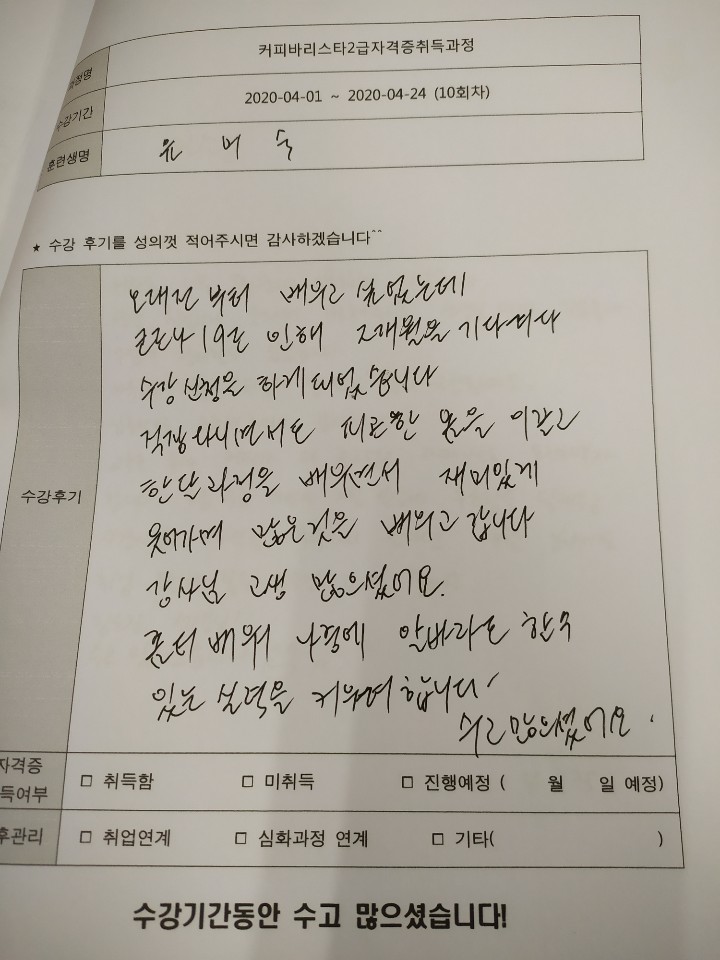 과정명 커피바리스타2급자격증취득과정
수강기간 2020-04-01 ~ 2020-04-24 (10회차)
훈련생명 윤 미 숙
★ 수강 후기를 성의껏 적어주시면 감사하겠습니다^^
수강후기
오래전 부터 배우고 싶었는데
코로나 19로 인해 2개월을 기다리다
수강 신청을 하게 되었습니다
직장 다니면서도 피곤한 몸을 이끌고
한달 과정을 배우면서 재미있게
웃어가며 많은것을 배우고 갑니다
강사님 고생 많으셨어요.
배워 나중에 알바라도 할수
있는 실력을 키우려 합니다
수고많으셨어요.
자격증
득여부 □ 취득함 □ 미취득 □ 진행예정 ( 월 일 예정)
후관리 □ 취업연계 □ 심화과정 연계 □ 기타( )
수강기간동안 수고 많으셨습니다!